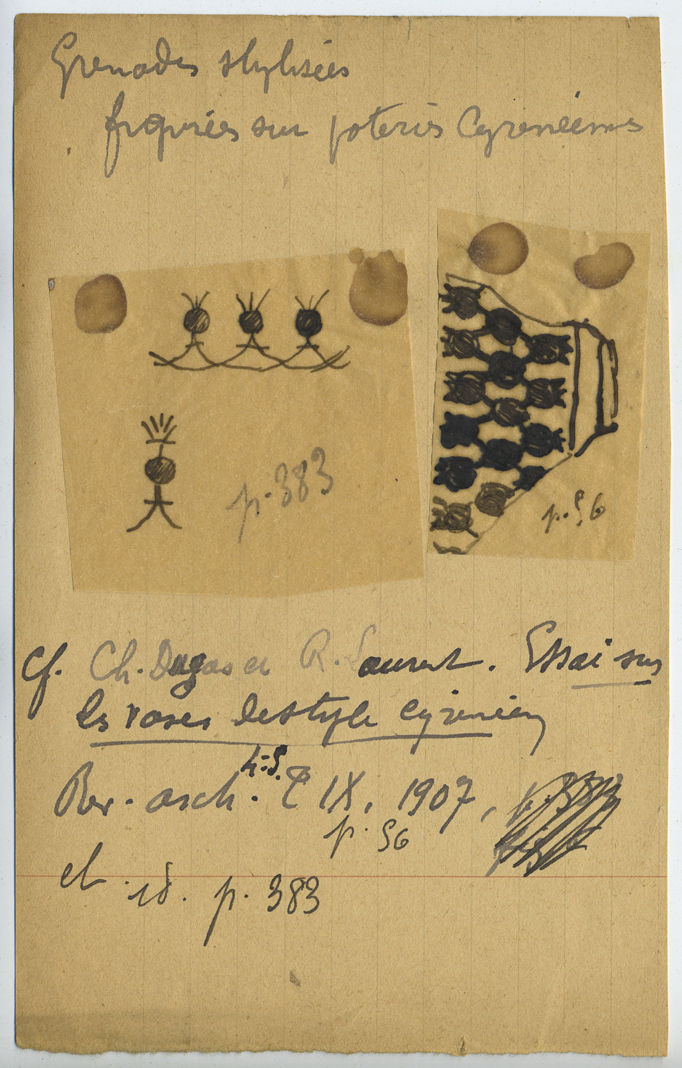 Grenades stylisées
figurées sur poteries Cyrénéennes
p. 383
p. 56
Cf. Ch. Dugas et R. Laurent. Essai sur
les vases de style Cyrénéen
Rev. arch. 4e S. T IX, 1907,
p. 56
et id. p. 383